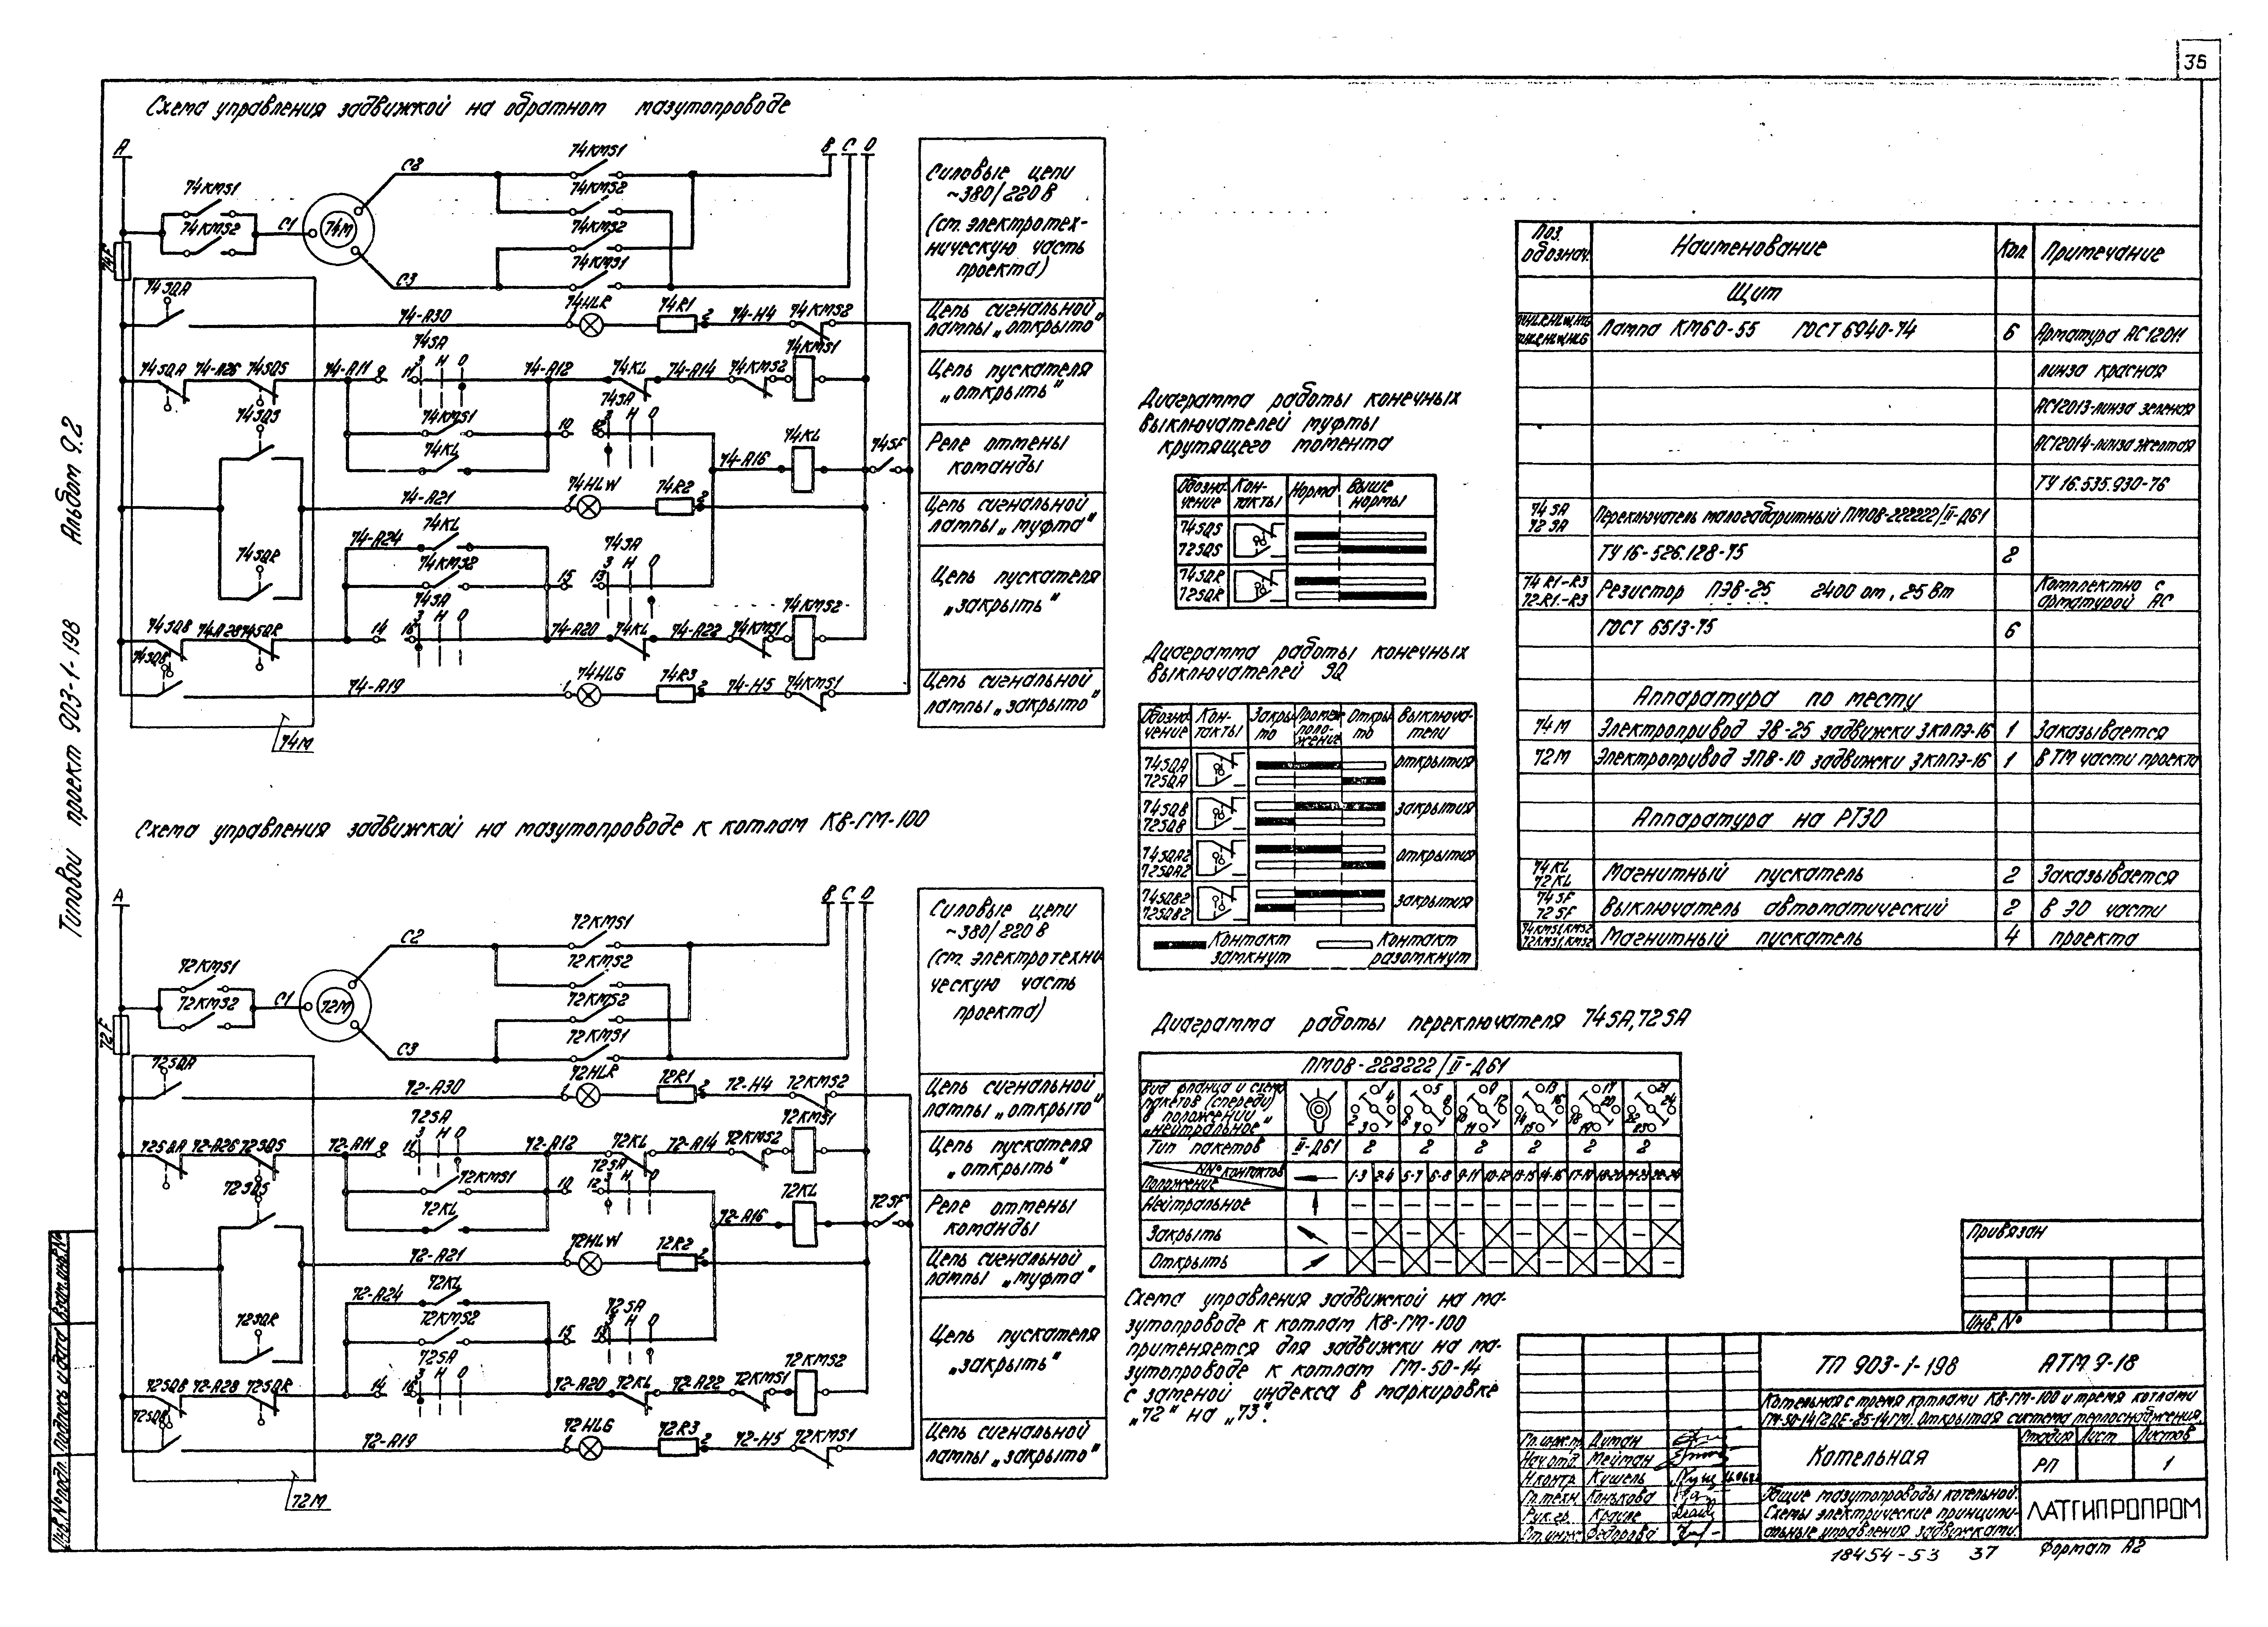 36
Схема управления задвижкой на обратном мазутопроводе
A
B C 0
74KMS1
74KMS2
C1
74M
C2
C3
74KMS1
74KMS2
74KMS2
74KMS1
74F
Силовые цепи
~380/220 В
(см. электротех-
ническую часть
проекта)
74SQA
74-A30
74HLR
74R1
2
74-H4
74KMS2
Цепь сигнальной
лампы „открыто"
74SQA
74-A26
74SQS
74-A11
9
11
74SA
З Н О
74-A12
74KL
74-A14
74KMS2
74KMS1
Цепь пускателя
„открыть"
74SQS
74KMS1
74KL
10
12
74SA
З Н О
74-A16
74KL
74SF
Реле отмены
команды
74-A21
1
74HLW
74R2
2
Цепь сигнальной
лампы „муфта"
74SQR
74-A24
74KL
74KMS2
15
13
74SA
З Н О
Цепь пускателя
„закрыть"
74SQB
74A28
74SQR
14
16
74SA
З Н О
74-A20
74KL
74-A22
74KMS1
74KMS2
74SQB
74-A19
1
74HLG
74R3
2
74-H5
74KMS1
Цепь сигнальной
лампы „закрыто"
74M
Схема управления задвижкой на мазутопроводе к котлам КВ-ГМ-100
A
B C 0
72KMS1
72KMS2
C1
72M
C2
C3
72KMS1
72KMS2
72KMS2
72KMS1
72F
Силовые цепи
~380/220 В
(см. электротехни
ческую часть
проекта)
72SQA
72-A30
1
72HLR
72R1
2
72-H4
72KMS2
Цепь сигнальной
лампы „открыто"
72SQA
72-A26
72SQS
72-A11
9
11
72SA
З Н О
72-A12
72KL
72-A14
72KMS2
72KMS1
Цепь пускателя
„открыть"
72SQS
72KMS1
72KL
10
12
72SA
З Н О
72-A16
72KL
72SF
Реле отмены
команды
72-A21
1
72HLW
72R2
2
Цепь сигнальной
лампы „муфта"
72SQR
72-A24
72KL
72KMS2
15
13
72SA
З Н О
Цепь пускателя
„закрыть"
72SQB
72-A28
72SQR
14
16
72SA
З Н О
72-A20
72KL
72-A22
72KMS1
72KMS2
72SQB
72-A19
1
72HLG
72R3
2
72-H5
72KMS1
Цепь сигнальной
лампы „закрыто"
72M
Диаграмма работы конечных
выключателей муфты
крутящего момента
Обозна-
чение
Кон-
такты
Норма
Выше
нормы
74SQS
72SQS
74SQR
72SQR
Диаграмма работы конечных
выключателей SQ
Обозна-
чение
Кон-
такты
Закры
то
Промеж
поло-
жение
Откры
то
Выключа-
тели
74SQA
72SQA
открытия
74SQB
72SQB
закрытия
74SQA2
72SQA2
открытия
74SQB2
72SQB2
закрытия
Контакт
замкнут
Контакт
разомкнут
Диаграмма работы переключателя 74SA, 72SA
ПМОВ-222222/II-Д61
Вид фланца и схема
пакетов (спереди)
в положении
„нейтральное"
Тип пакетов II-Д61 2 2 2 2 2 2
NN° контактов
Положение
1-3 2-4 5-7 6-8 9-11 10-12 13-15 14-16 17-19 18-20 21-23 22-24
Нейтральное
Закрыть
Открыть
Схема управления задвижкой на ма-
зутопроводе к котлам КВ-ГМ-100
применяется для задвижки на ма-
зутопроводе к котлам ГМ-50-14
с заменой индекса в маркировке
„72" на „73".
Поз.
обознач.
Наименование
Кол
Примечание
Щит
Лампа КМ60-55 ГОСТ 6940-74 6 Арматура АС12011
линза красная
АС12013-линза зеленая
АС12014-линза желтая
ТУ 16.535.930-76
74SA
72SA
Переключатель малогабаритный ПМОВ-222222/II-Д61
ТУ 16-526.128-75 2
74R1-R3
72-R1-R3
Резистор ПЭВ-25 2400 ом, 25 Вт
Комплектно с
арматурой АС
ГОСТ 6513-75 6
Аппаратура по месту
74М Электропривод ЭВ-25 задвижки ЗКЛПЭ-16 1 Заказывается
72М Электропривод ЭПВ-10 задвижки ЗКЛПЭ-16 1 в ТМ части проекта
Аппаратура на РТЗО
74KL
72KL
Магнитный пускатель 2 Заказывается
74SF
72SF
Выключатель автоматический 2 в ЭО части
74KMS1, KMS2
72KMS1, KMS2
Магнитный пускатель 4 проекта
Привязан
Инв. №
ТП 903-1-198 АТМ 9-18
Котельная с тремя котлами КВ-ГМ-100 и тремя котлами
ГМ-50-14/2ДЕ-25-14ГМ/. Открытая система теплоснабжения.
Котельная
Стадия Лист Листов
РП 1
Гл. инж. пр. Думан
Нач. отд. Мейман
Н. контр. Кушель
Гл. техн. Конькова
Рук. гр. Краузе
Ст. инж. Федорова
Общие мазутопроводы котельной.
Схемы электрические принципи-
альные управления задвижками.
ЛАТГИПРОПРОМ
18454-53 37
Формат А2
Типовой проект 903-1-198 Альбом 9.2
Инв. № подл. Подпись и дата Взам. инв. №